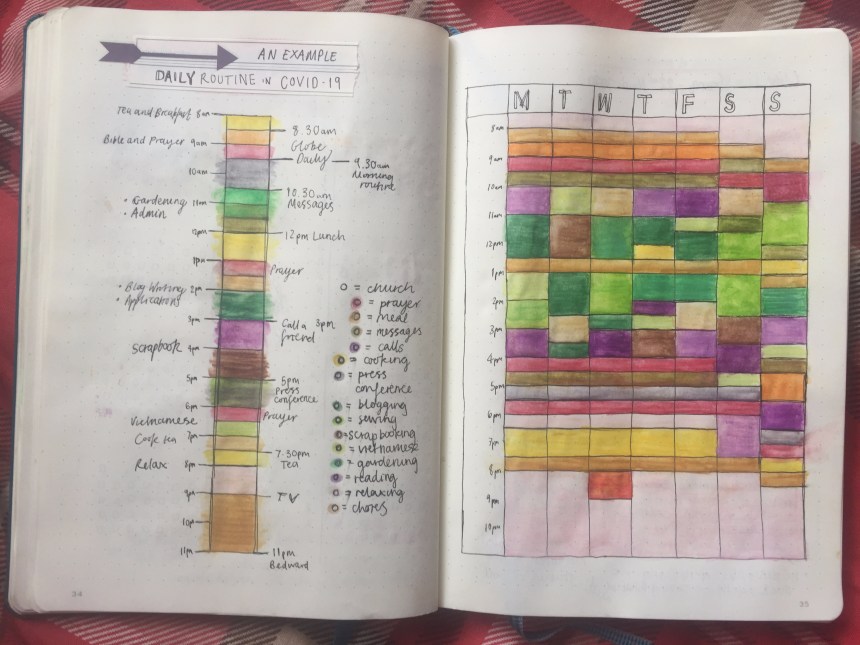 AN EXAMPLE
DAILY ROUTINE IN COVID-19
Tea and Breakfast 8am
8.30am
Globe
Daily
Bible and Prayer 9am
9.30am
Morning
routine
10am
10.30am
Messages
• Gardening 11am
• Admin
12pm
12pm Lunch
1pm
Prayer
• Blog Writing 2pm
• Applications
3pm
Call a 3pm
friend
Scrapbook 4pm
5pm
5pm
Press
Conference
6pm
Prayer
Vietnamese
Cook tea 7pm
7-30pm
Tea
Relax 8pm
9pm
TV
10pm
11pm
11pm
Bedward
= church
= prayer
= meal
= messages
= calls
= cooking
= press
conference
= blogging
= sewing
= scrapbooking
= vietnamese
= gardening
= reading
= relaxing
= chores
34
M T W T F S S
8am
9am
10am
11am
12pm
1pm
2pm
3pm
4pm
5pm
6pm
7pm
8pm
9pm
10pm
35